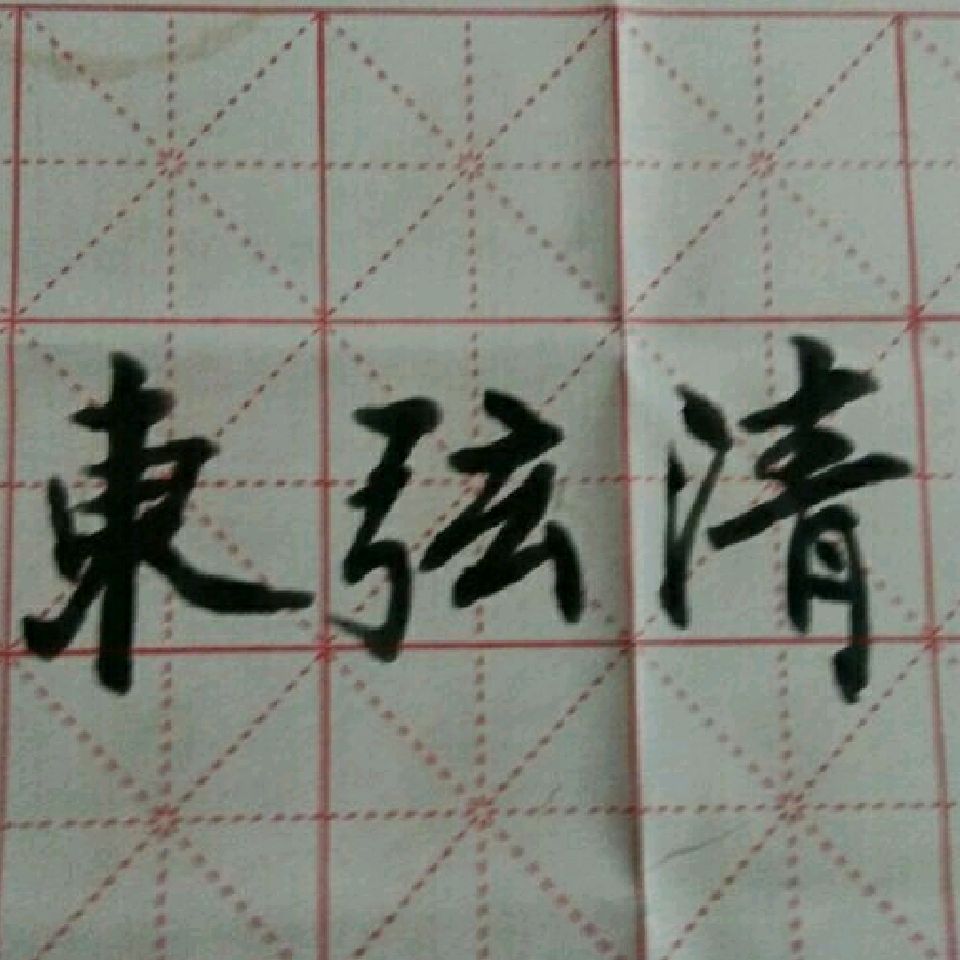 東弦清